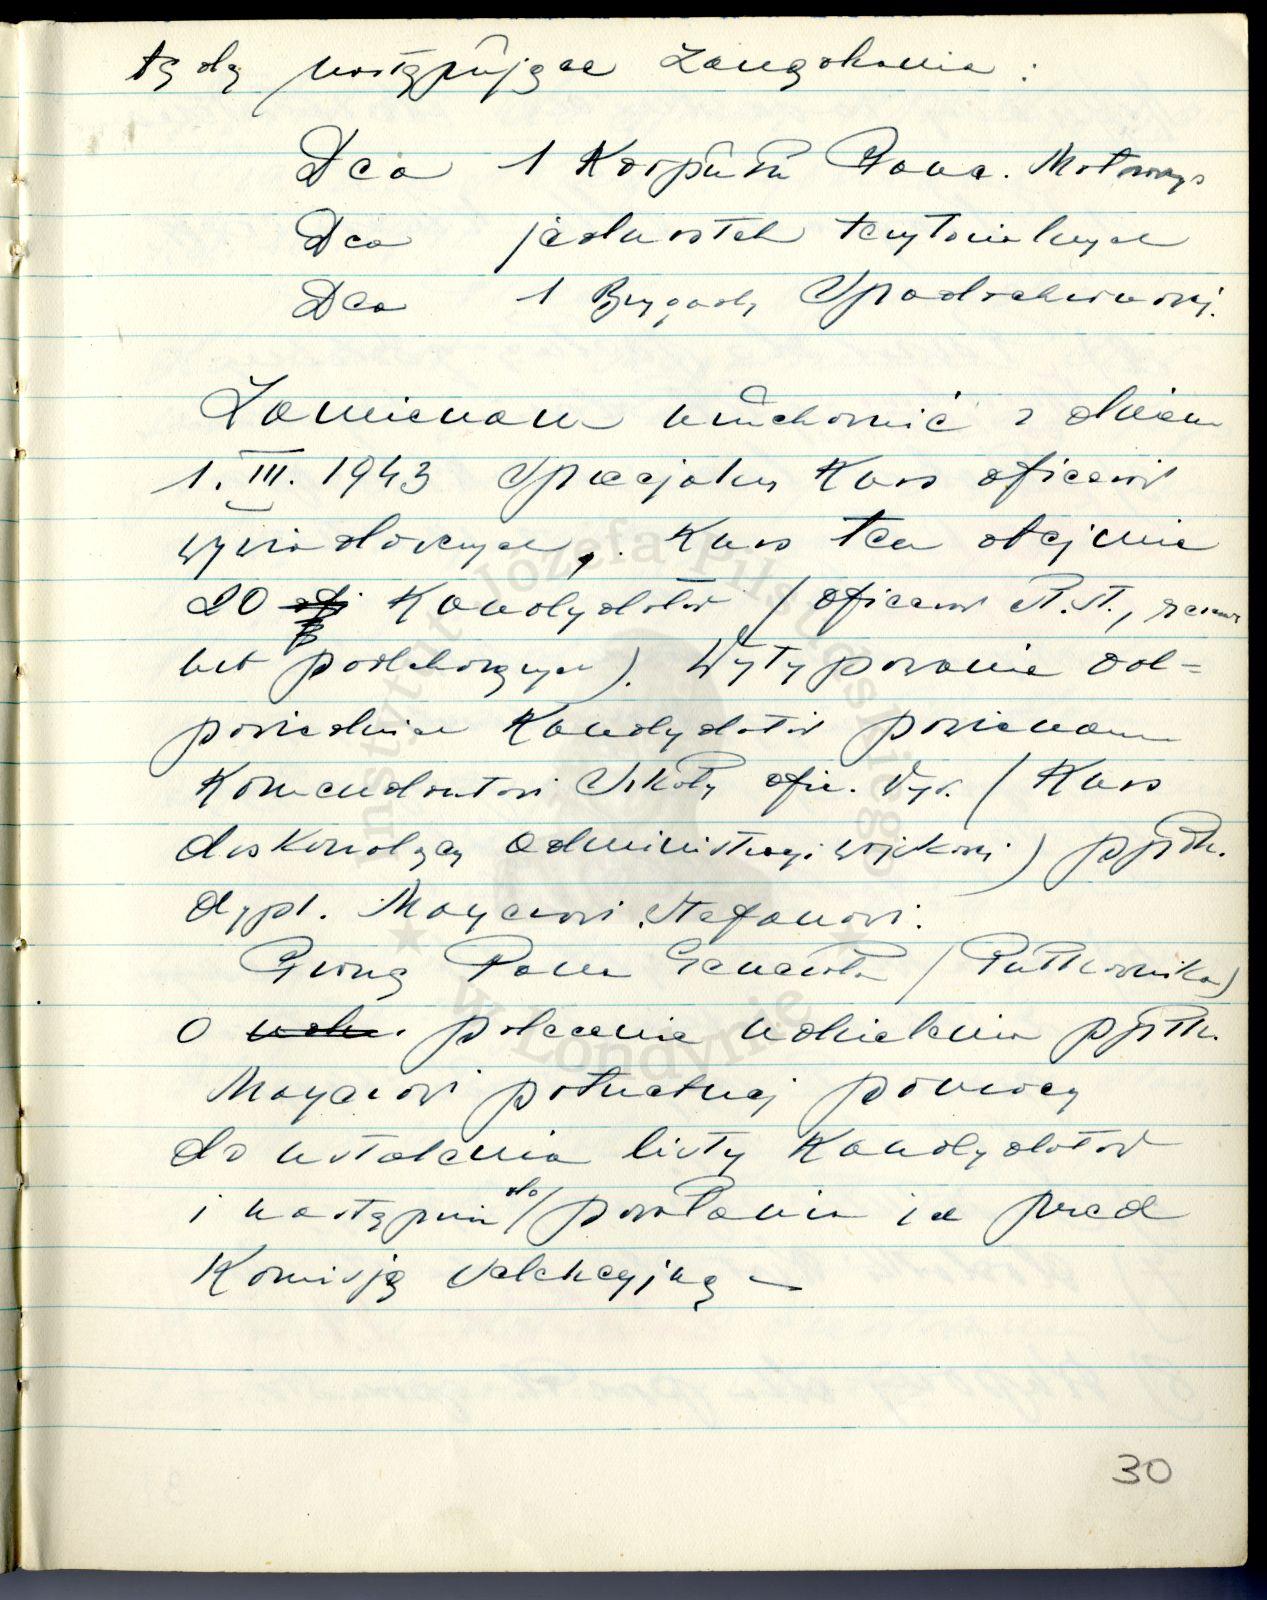 będą następujące zarządzenia:
Dca 1 Korpusu Panc. Motorowego
Dca jednostek terytorialnych
Dca 1 Brygady Spadochronowej.
Zamierzam uruchomić z dniem
1. III. 1943 Specjalny Kurs oficerów
wywiadowczych. Kurs ten obejmie
20 ofi Kandydatów (oficerów St. St., rezerwy
lub podchorążych). Wytypowanie od=
powiednich Kandydatów powierzam
Komendantowi Szkoły ofic. Wyw. (Kurs
doskonalący administracji wojskowej) ppłk.
dypl. Mayerowi Stefanowi.
Proszę Pana Generała (Pułkownika)
o polecenie udzielenia ppłk.
Mayerowi potrzebnej pomocy
do ustalenia listy Kandydatów
i następnie do powołania ich przed
Komisję Selekcyjną
30
Instytut Józefa Piłsudskiego
w Londynie